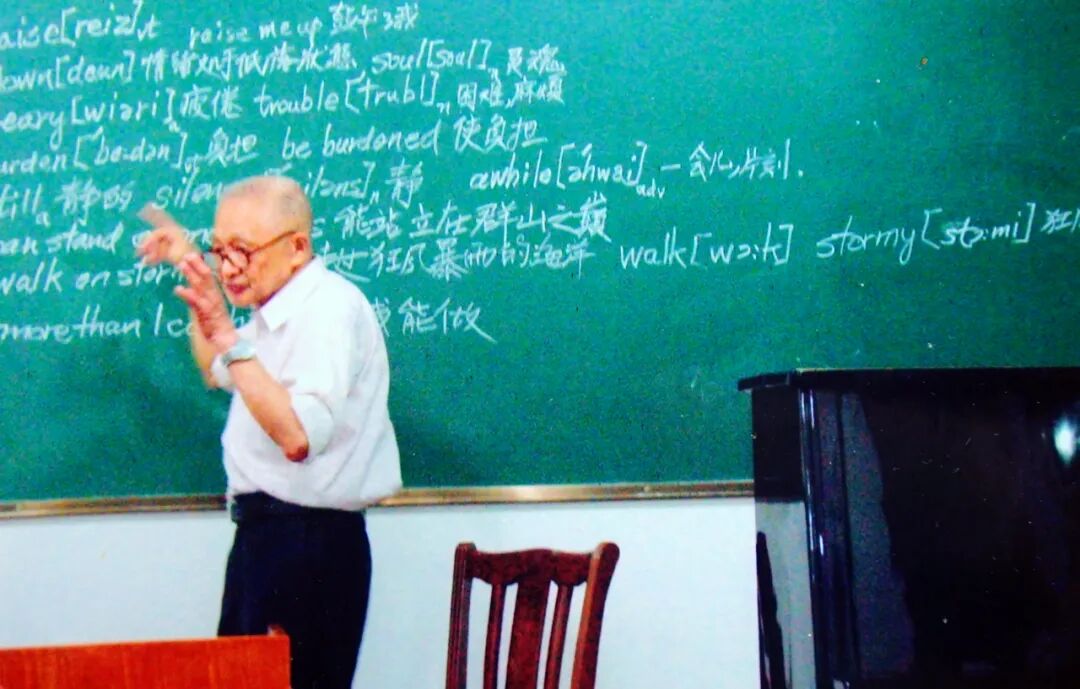 aise[reiz]vt raise me up 鼓午了我
down[daun]情绪处于低落状态 soul[soul]n灵魂
eary[wiəri]a疲倦 trouble[trʌbl]n困难,麻烦
urden[bə:dən]vt负担 be burdened 使负担
till a静的 silen n静 awhile[əhwai]adv一会儿,片刻.
an stand 能站立在群山之巅
walk on storm 狂风暴雨的海洋 walk[wɔ:k] stormy[stɔ:mi]狂风
more than I ca 能做